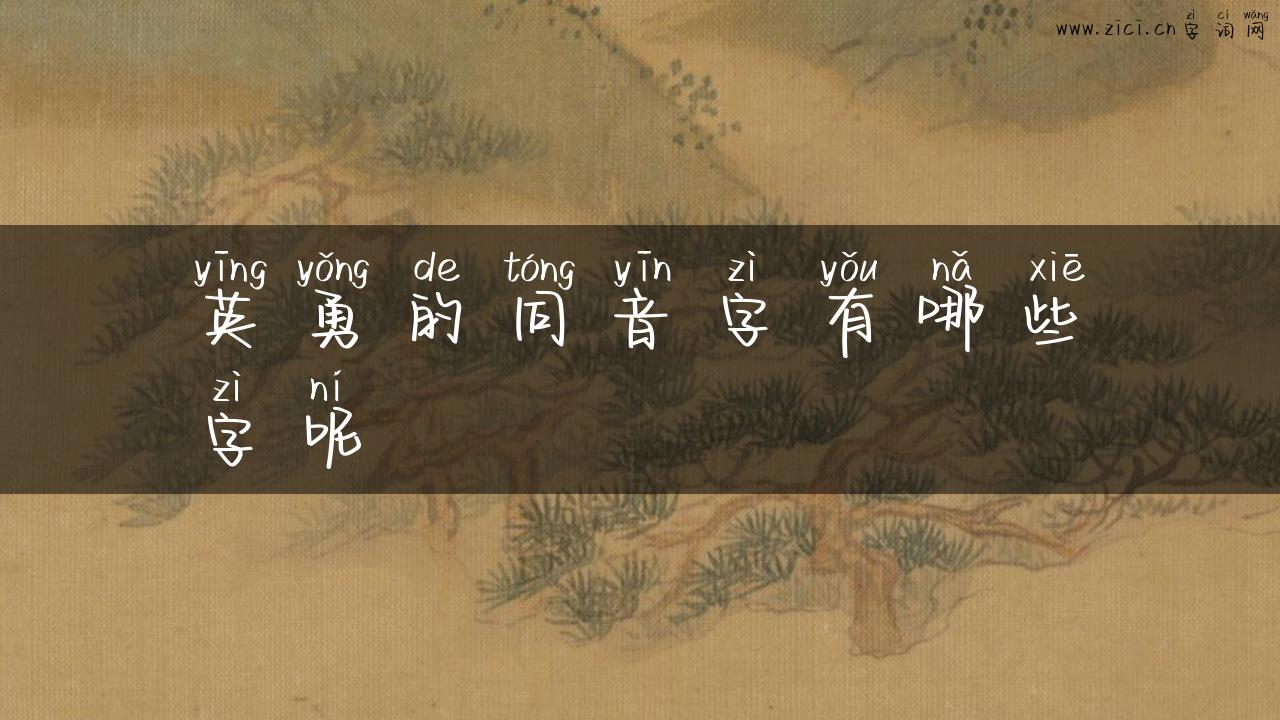 zì cí wǎng
www.zici.cn 字词网
yīng yǒng de tóng yīn zì yǒu nǎ xiē
英勇的同音字有哪些
zì ní
字呢